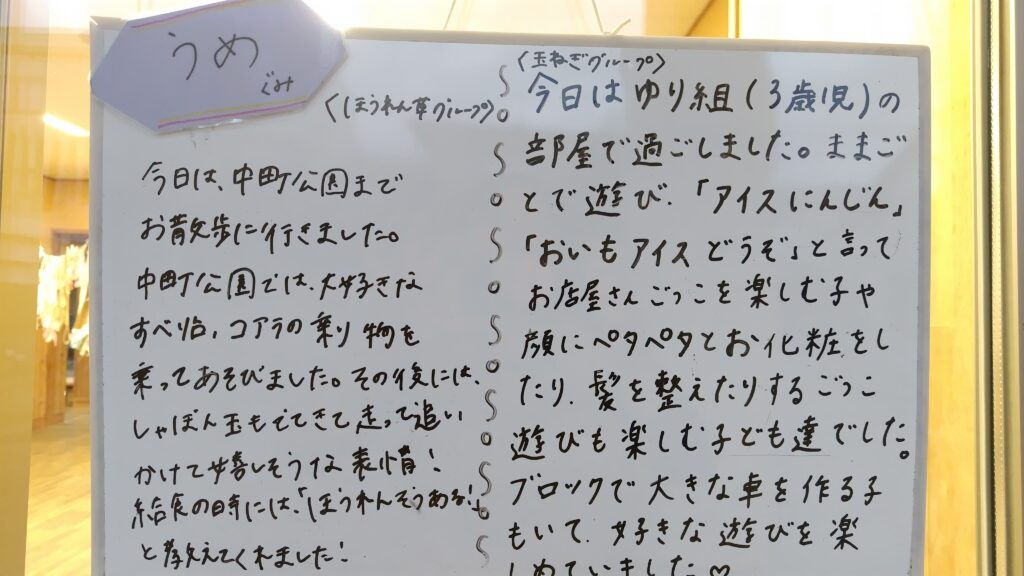 うめ
ぐみ
〈ほうれん草グループ〉
今日は、中町公園まで
お散歩に行きました。
中町公園では、大好きな
すべり台、コアラの乗り物を
乗ってあそびました。その後には、
しゃぼん玉もでてきて走って追い
かけて嬉しそうな表情!
給食の時には、「ほうれんそうある!」
と教えてくれました!
〈玉ねぎグループ〉
今日はゆり組(3歳児)の
部屋で過ごしました。ままご
とで遊び、「アイスにんじん」
「おいもアイスどうぞ」と言って
お店屋さんごっこを楽しむ子や
顔にペタペタとお化粧をし
たり、髪を整えたりするごっこ
遊びも楽しむ子ども達でした。
ブロックで大きな車を作る子
もいて、好きな遊びを楽
しめていました♡